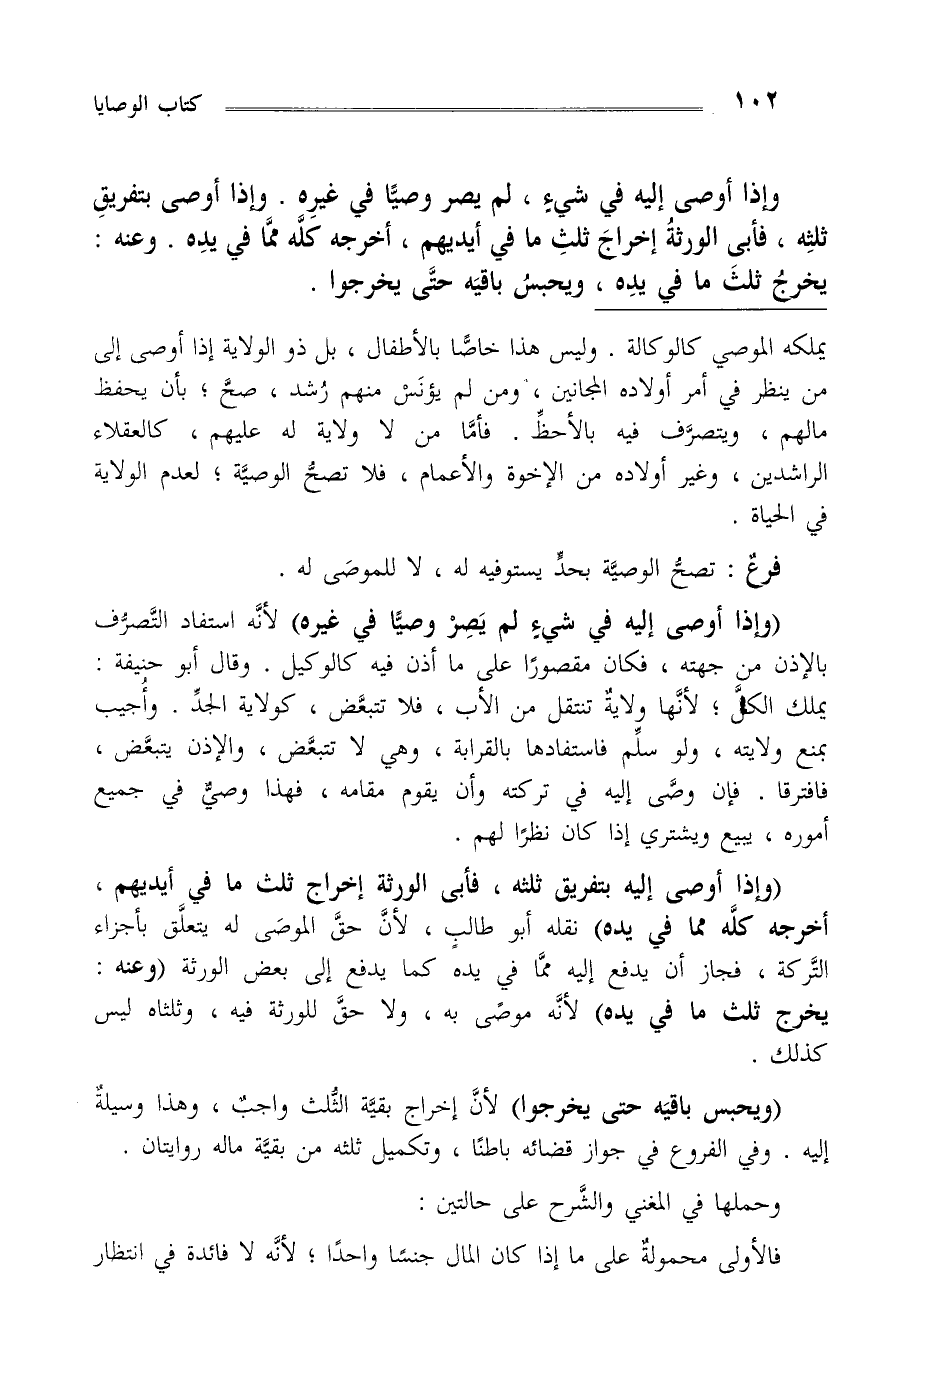 ١٠٢ كتاب الوصايا
وإذا أوصى إليه في شيءٍ ، لم يصر وصيًّا في غيرِه . وإذا أوصى بتفريقِ
ثلثِه ، فأبى الورثةُ إخراجَ ثلثِ ما في أيديهم ، أخرجه كلَّه ممَّا في يدِه . وعنه :
يخرجُ ثلثَ ما في يدِه ، ويحبسُ باقيَه حتَّى يخرجوا .
يملكه الموصي كالوكالة . وليس هذا خاصًّا بالأطفال ، بل ذو الولاية إذا أوصى إلى
من ينظر في أمر أولاده المجانين ، ومن لم يؤنَسْ منهم رُشد ، صحَّ ؛ بأن يحفظ
مالهم ، ويتصرَّف فيه بالأحظِّ . فأمَّا من لا ولاية له عليهم ، كالعقلاء
الراشدين ، وغير أولاده من الإخوة والأعمام ، فلا تصحُّ الوصيَّة ؛ لعدم الولاية
في الحياة .
فرعٌ : تصحُّ الوصيَّة بحدٍّ يستوفيه له ، لا للموصَى له .
(وإذا أوصى إليه في شيءٍ لم يَصِرْ وصيًّا في غيره) لأنَّه استفاد التَّصرُّف
بالإذن من جهته ، فكان مقصورًا على ما أذن فيه كالوكيل . وقال أبو حنيفة :
يملك الكلَّ ؛ لأنَّها ولايةٌ تنتقل من الأب ، فلا تتبعَّض ، كولاية الجدِّ . وأُجيب
بمنع ولايته ، ولو سلِّم فاستفادها بالقرابة ، وهي لا تتبعَّض ، والإذن يتبعَّض ،
فافترقا . فإن وصَّى إليه في تركته وأن يقوم مقامه ، فهذا وصيٌّ في جميع
أموره ، يبيع ويشتري إذا كان نظرًا لهم .
(وإذا أوصى إليه بتفريق ثلثه ، فأبى الورثة إخراج ثلث ما في أيديهم ،
أخرجه كلَّه مما في يده) نقله أبو طالبٍ ، لأنَّ حقَّ الموصَى له يتعلَّق بأجزاء
التَّركة ، فجاز أن يدفع إليه ممَّا في يده كما يدفع إلى بعض الورثة (وعنه :
يخرج ثلث ما في يده) لأنَّه موصًى به ، ولا حقَّ للورثة فيه ، وثلثاه ليس
كذلك .
(ويحبس باقيَه حتى يخرجوا) لأنَّ إخراج بقيَّة الثُّلث واجبٌ ، وهذا وسيلةٌ
إليه . وفي الفروع في جواز قضائه باطنًا ، وتكميل ثلثه من بقيَّة ماله روايتان .
وحملها في المغني والشَّرح على حالتين :
فالأولى محمولةٌ على ما إذا كان المال جنسًا واحدًا ؛ لأنَّه لا فائدة في انتظار